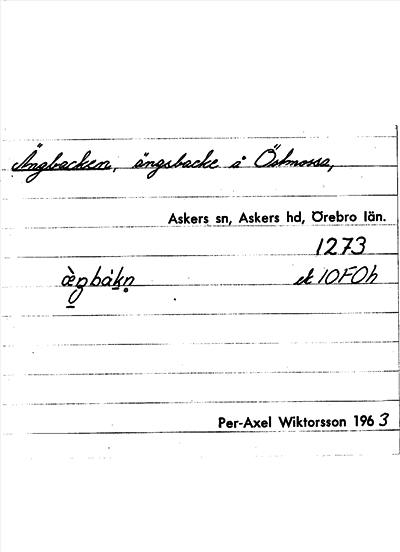 Ängbacken, ängsbacke å Östmossa,
Askers sn, Askers hd, Örebro län.
1273
æ̀ŋbákn̥ ek 10F0h
Per-Axel Wiktorsson 1963